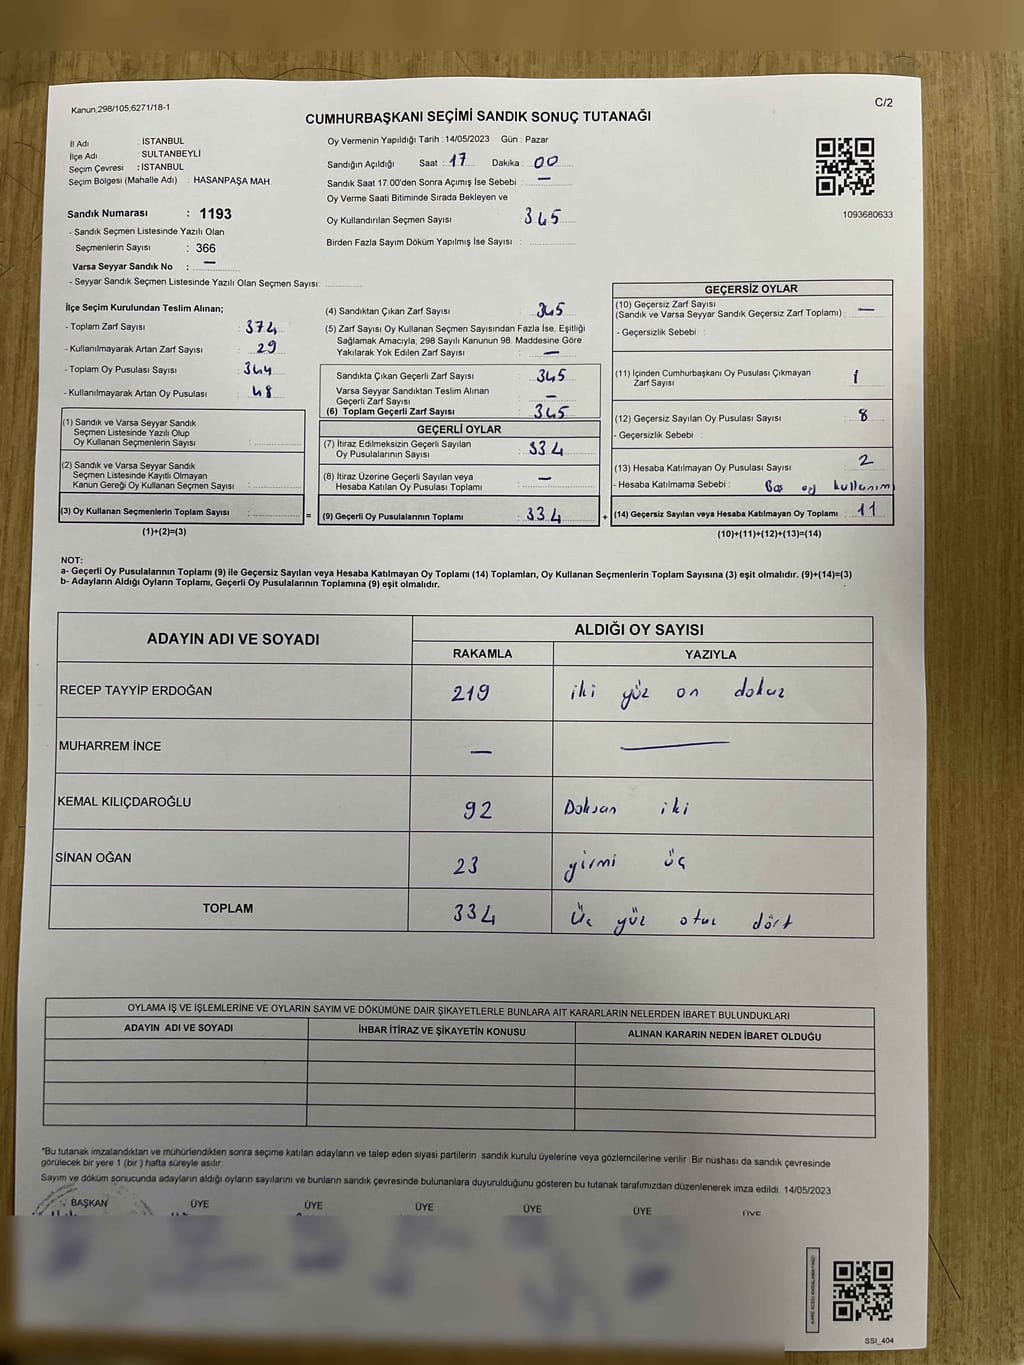 Kanun:298/105,6271/18-1
C/2
CUMHURBAŞKANI SEÇİMİ SANDIK SONUÇ TUTANAĞI
İl Adı : İSTANBUL
İlçe Adı : SULTANBEYLİ
Seçim Çevresi : İSTANBUL
Seçim Bölgesi (Mahalle Adı) : HASANPAŞA MAH.
Sandık Numarası : 1193
- Sandık Seçmen Listesinde Yazılı Olan
Seçmenlerin Sayısı : 366
Varsa Seyyar Sandık No : —
- Seyyar Sandık Seçmen Listesinde Yazılı Olan Seçmen Sayısı:
Oy Vermenin Yapıldığı Tarih : 14/05/2023 Gün : Pazar
Sandığın Açıldığı Saat : 17 Dakika : 00
Sandık Saat 17:00'den Sonra Açımış İse Sebebi : —
Oy Verme Saati Bitiminde Sırada Bekleyen ve
Oy Kullandırılan Seçmen Sayısı 345
Birden Fazla Sayım Döküm Yapılmış İse Sayısı :
1093680633
İlçe Seçim Kurulundan Teslim Alınan;
- Toplam Zarf Sayısı : 374
- Kullanılmayarak Artan Zarf Sayısı : 29
- Toplam Oy Pusulası Sayısı : 344
- Kullanılmayarak Artan Oy Pusulası : 48
(1) Sandık ve Varsa Seyyar Sandık
Seçmen Listesinde Yazılı Olup
Oy Kullanan Seçmenlerin Sayısı :
(2) Sandık ve Varsa Seyyar Sandık
Seçmen Listesinde Kayıtlı Olmayan
Kanun Gereği Oy Kullanan Seçmen Sayısı :
(3) Oy Kullanan Seçmenlerin Toplam Sayısı :
(1)+(2)=(3)
(4) Sandıktan Çıkan Zarf Sayısı : 345
(5) Zarf Sayısı Oy Kullanan Seçmen Sayısından Fazla İse, Eşitliği
Sağlamak Amacıyla; 298 Sayılı Kanunun 98. Maddesine Göre
Yakılarak Yok Edilen Zarf Sayısı : —
Sandıkta Çıkan Geçerli Zarf Sayısı : 345
Varsa Seyyar Sandıktan Teslim Alınan
Geçerli Zarf Sayısı : —
(6) Toplam Geçerli Zarf Sayısı : 345
GEÇERLİ OYLAR
(7) İtiraz Edilmeksizin Geçerli Sayılan
Oy Pusulalarının Sayısı : 334
(8) İtiraz Üzerine Geçerli Sayılan veya
Hesaba Katılan Oy Pusulası Toplamı : —
= (9) Geçerli Oy Pusulalarının Toplamı : 334
GEÇERSİZ OYLAR
(10) Geçersiz Zarf Sayısı
(Sandık ve Varsa Seyyar Sandık Geçersiz Zarf Toplamı) : —
- Geçersizlik Sebebi :
(11) İçinden Cumhurbaşkanı Oy Pusulası Çıkmayan
Zarf Sayısı : 1
(12) Geçersiz Sayılan Oy Pusulası Sayısı : 8
- Geçersizlik Sebebi :
(13) Hesaba Katılmayan Oy Pusulası Sayısı : 2
- Hesaba Katılmama Sebebi : Boş oy kullanım
+ (14) Geçersiz Sayılan veya Hesaba Katılmayan Oy Toplamı : 11
(10)+(11)+(12)+(13)=(14)
NOT:
a- Geçerli Oy Pusulalarının Toplamı (9) ile Geçersiz Sayılan veya Hesaba Katılmayan Oy Toplamı (14) Toplamları, Oy Kullanan Seçmenlerin Toplam Sayısına (3) eşit olmalıdır. (9)+(14)=(3)
b- Adayların Aldığı Oyların Toplamı, Geçerli Oy Pusulalarının Toplamına (9) eşit olmalıdır.
ADAYIN ADI VE SOYADI
ALDIĞI OY SAYISI
RAKAMLA YAZIYLA
RECEP TAYYİP ERDOĞAN 219 iki yüz on dokuz
MUHARREM İNCE — —
KEMAL KILIÇDAROĞLU 92 Doksan iki
SİNAN OĞAN 23 yirmi üç
TOPLAM 334 Üç yüz otuz dört
OYLAMA İŞ VE İŞLEMLERİNE VE OYLARIN SAYIM VE DÖKÜMÜNE DAİR ŞİKAYETLERLE BUNLARA AİT KARARLARIN NELERDEN İBARET BULUNDUKLARI
ADAYIN ADI VE SOYADI İHBAR İTİRAZ VE ŞİKAYETİN KONUSU ALINAN KARARIN NEDEN İBARET OLDUĞU
*Bu tutanak imzalandıktan ve mühürlendikten sonra seçime katılan adayların ve talep eden siyasi partilerin sandık kurulu üyelerine veya gözlemcilerine verilir. Bir nüshası da sandık çevresinde
görülecek bir yere 1 (bir ) hafta süreyle asılır.
Sayım ve döküm sonucunda adayların aldığı oyların sayılarını ve bunların sandık çevresinde bulunanlara duyurulduğunu gösteren bu tutanak tarafımızdan düzenlenerek imza edildi. 14/05/2023
BAŞKAN ÜYE ÜYE ÜYE ÜYE ÜYE ÜYE
SSI_404